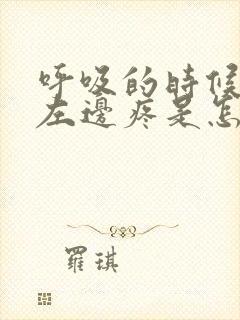 呼吸的時候
左邊疼是怎
羅琪